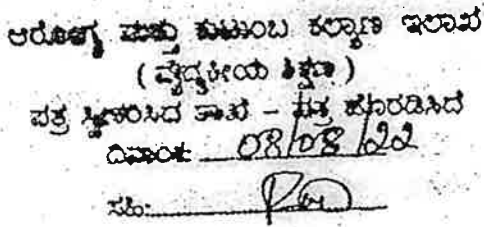 ಆರೋಗ್ಯ ಮತ್ತು ಕುಟುಂಬ ಕಲ್ಯಾಣ ಇಲಾಖೆ
( ವೈದ್ಯಕೀಯ ಶಿಕ್ಷಣ )
ಪತ್ರ ಸ್ವೀಕರಿಸಿದ ಶಾಖೆ - ಪತ್ರ ಹೊರಡಿಸಿದ
ದಿನಾಂಕ: 08/08/22
ಸಹಿ: